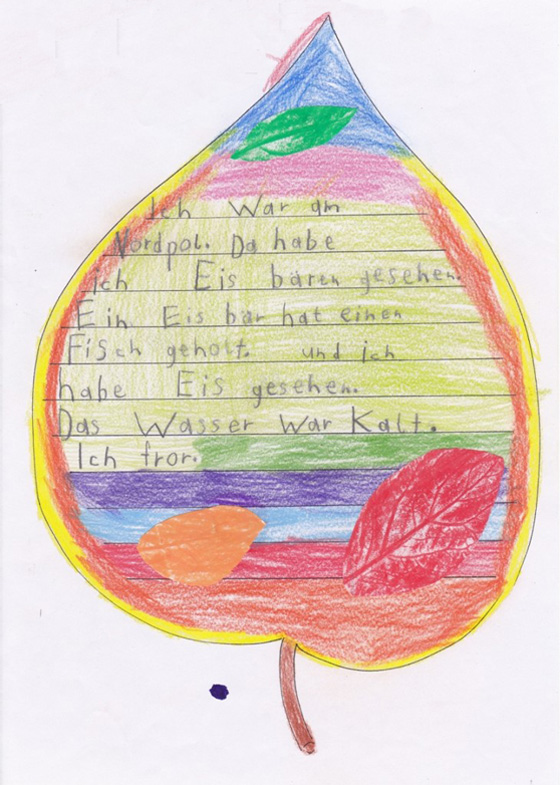 Ich War am
Nordpol. Da habe
ich Eis bären gesehen.
Ein Eis bär hat einen
Fisch geholt. und ich
habe Eis gesehen.
Das Wasser War Kalt.
Ich fror.